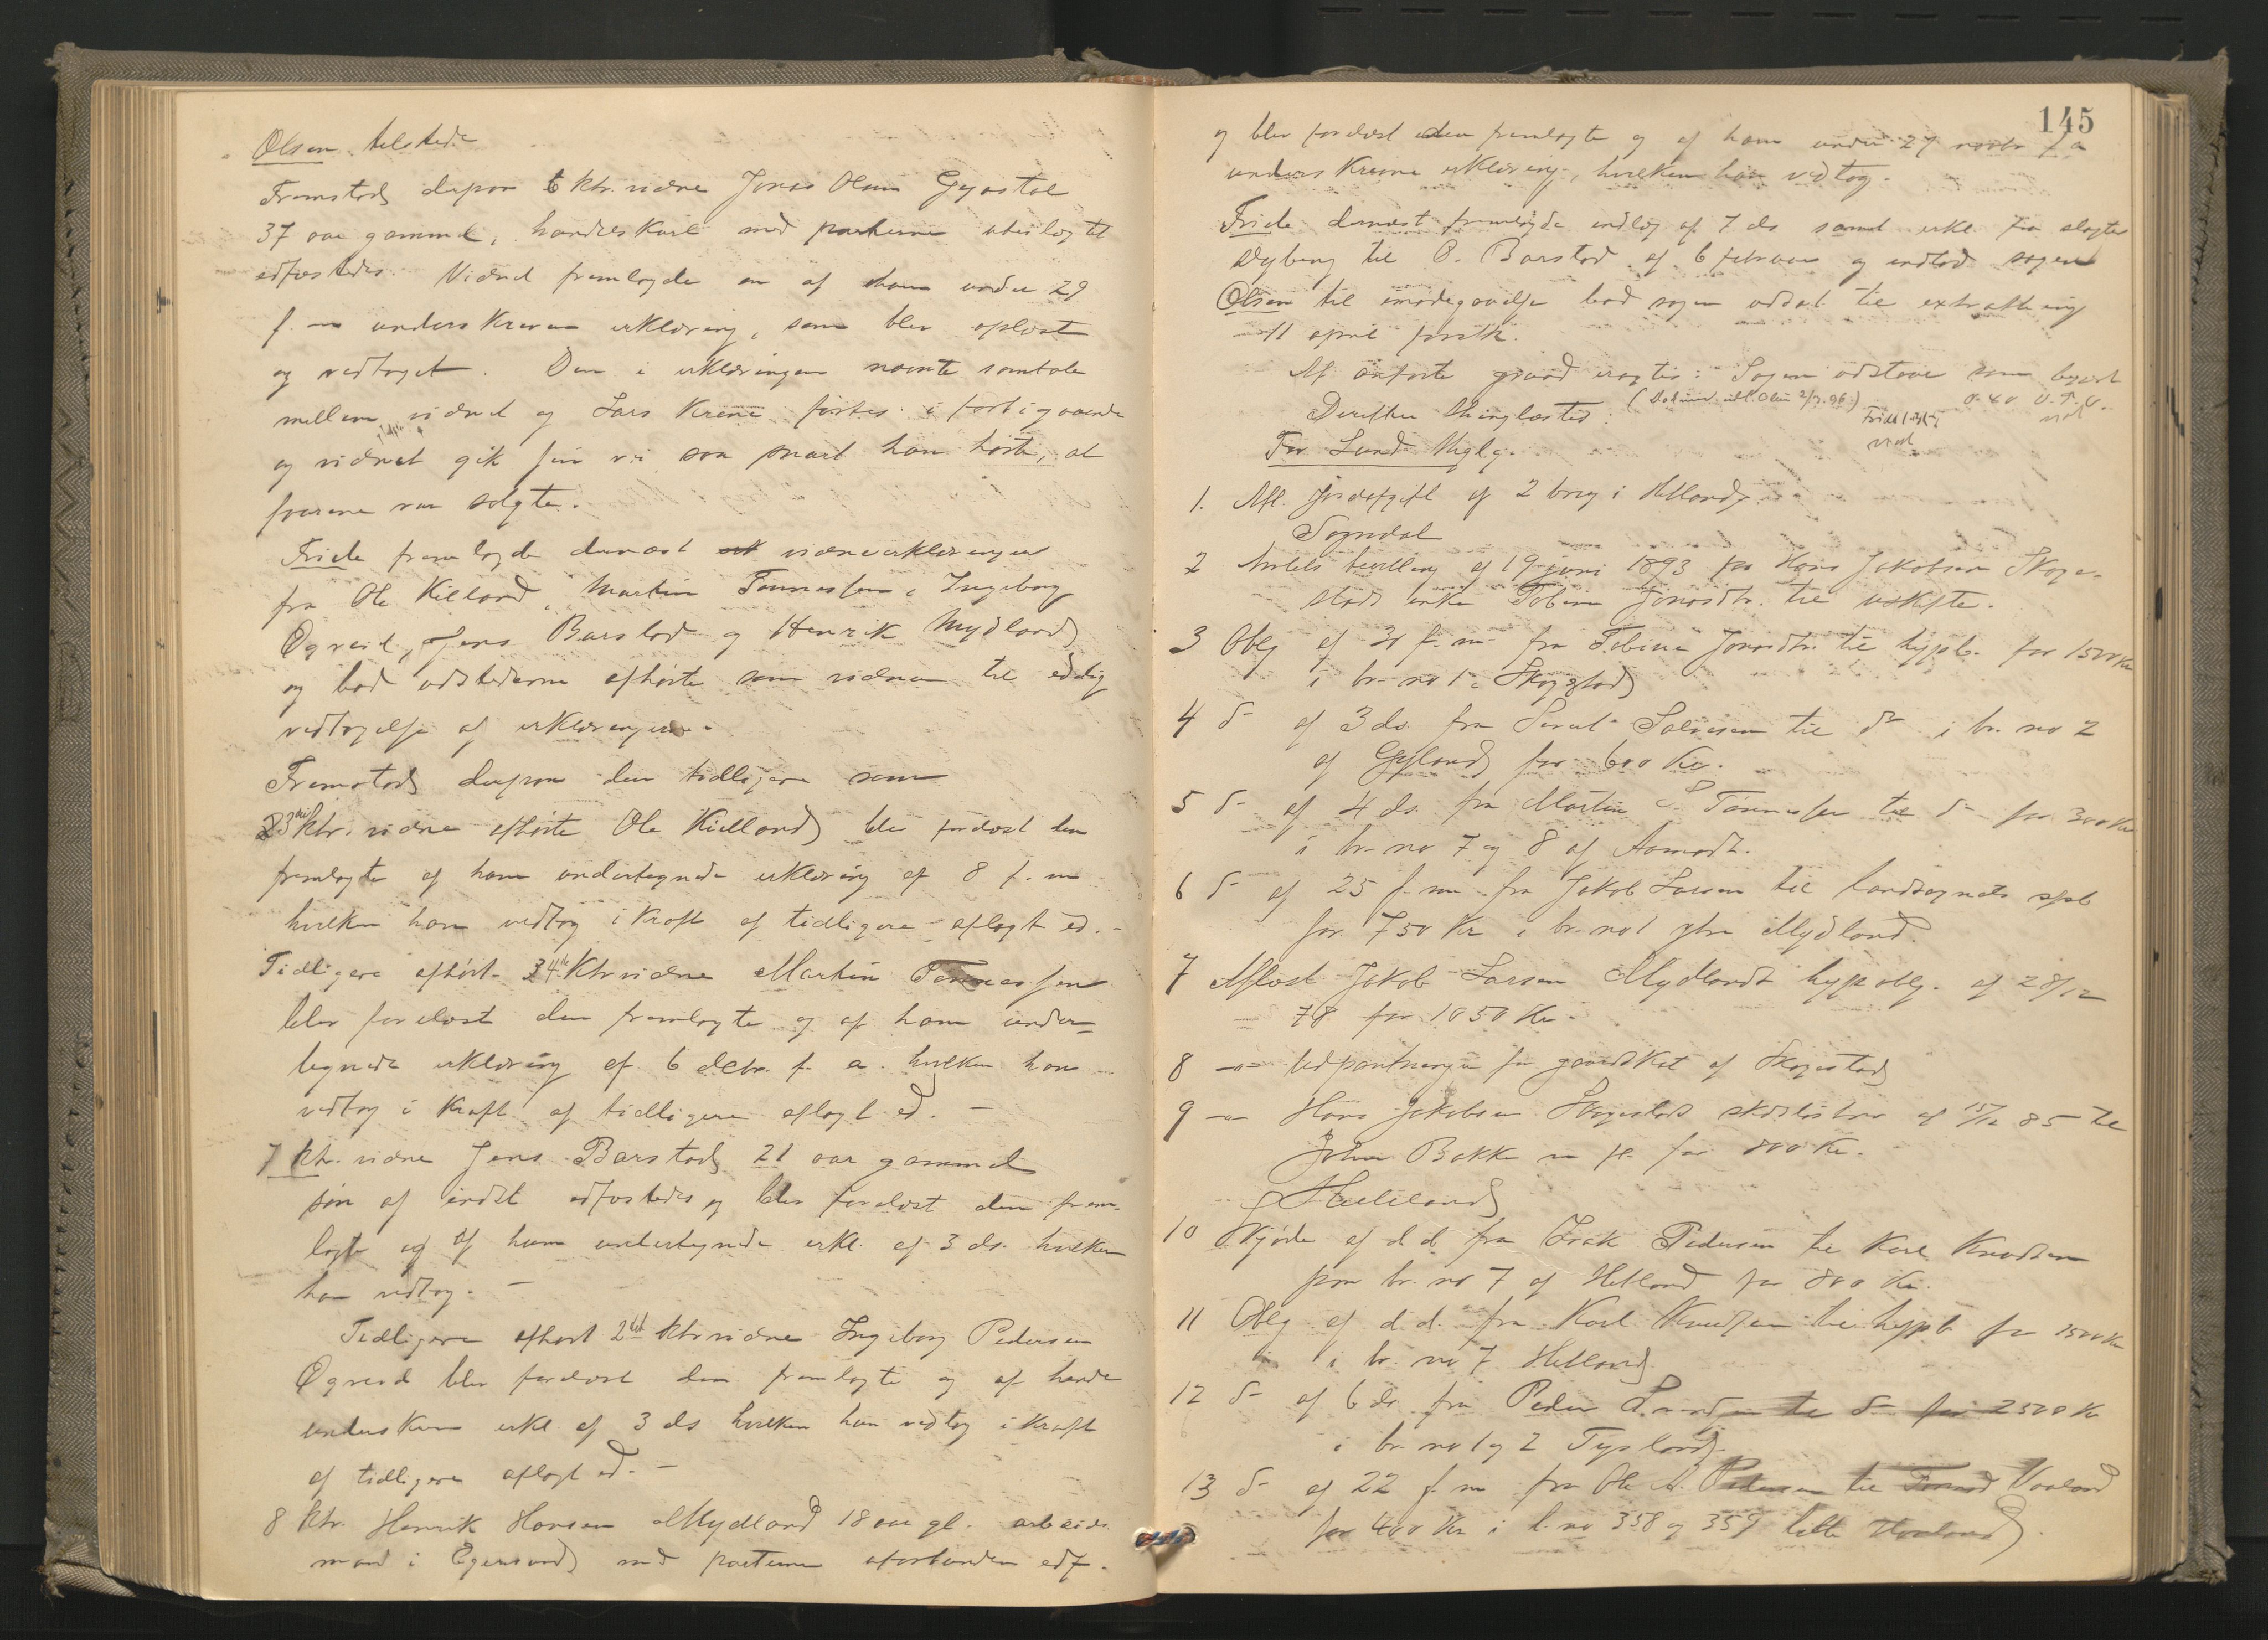 Olsen tilstede
Fremstod derpaa 6 ktr. vidne Jonas Olsen Gyastøl
37 aar gammel, handelskarl med parterne ubeslægtet
edfæstedes. Vidnet fremlagde en af ham under 29
f. m underskreven erklæring, som blev oplæst
og vedtaget. Den i erklæringen nævnte samtale
mellem vidnet og Lars førtes i forbigaaende
og vidnet gik sin vei saa snart han hørte, at
faarene var solgte.
Friele fremlagde dernæst vidneerklæringer
fra Ole Kielland, Martin Tønnessen, Ingeborg
Øgreid, Jens Barstad og Henrik Mydland
og bad udstederne afhørte som vidner til edelig
vedtagelse af erklæringerne.
Fremstod derpaa den tidligere som
23de ktr. vidne afhørte Ole Kielland blev forelæst den
fremlagte af ham undertegnede erklæring af 8 f. m
hvilken han vedtog i kraft af tidligere aflagt ed. -
Tidligere afhørt 34te ktr vidne Martin Tønnessen
blev forelæst den fremlagte og af ham under=
tegnede erklæring af 6 decbr. f. a. hvilken han
vedtog i kraft af tidligere aflagt ed. -
7 ktr. vidne Jens Barstad 21 aar gammel
søn af indst edfæstedes og blev forelæst den frem-
lagte og af ham undertegnede erkl. af 3 ds. hvilken
han vedtog. -
Tidligere afhørt 2det ktr vidne Ingeborg Pedersen
Øgreid blev forelæst den fremlagte og af hende
underskrevne erkl. af 3 ds hvilken hun vedtog i kraft
af tidligere aflagt ed. -
8 ktr. Henrik Hansen Mydland 18 aar gl. arbeids
mand i Egersund med parterne uforbunden edf.
145
og blev forelæst den fremlagte og af ham under 27 novbr f a
underskrevne erklæring, hvilken han vedtog.
Friele dernæst fremlagde indlæg af 7 ds samt erkl. fra slagter
Nyberg til O. Barstad af 6 februar og indlod sagen
Olsen til imødegaaelse bad sagen udsat til extrating
11 april førstk.
Af anførte grund eragtes: Sagen udstaar som begjært
Derefter thinglæstes: (Dokum. udl. Olsen 2/3. 96.)
For Lunds thglg.
1. Afl. jordafgift af 2 brug i Hetland
Sogndal
2 Amtets bevilling af 19 juni 1893 for Hans Jakobsen Skoge-
stads enke Tobine Jonasdtr. til uskifte.
3 Oblg af 31 f. m fra Tobine Jonasdtr. til hypb. for 1500 Kr
i br. no 1 Skogestad
4 d- af 3 ds. fra Salvesen til do i br. no 2
af Gyland for 600 Kr.
5 d- af 4 ds. fra Martin S. Tønnessen til d- for 300 Kr
i br. no 7 og 8 af Aamodt.
6 d- af 25 f. m fra Jakob Larsen til landsognets spb
for 750 Kr i br. no 1 ytre Mydland.
7 Aflæst Jakob Larsen Mydlands hypoblg. af 28/12
78 for 1050 Kr.
8 -"- udpantninger for gaardskat af Skogestad
9 -"- Hans Jakobsen Skogestads skdsløsbrev af 15/12 85 til
John Bakke m fl. for 800 Kr.
Helleland
10 Skjøde af d d fra Isak Pedersen til Karl Knudsen
paa br. no 7 af Hetland for 800 Kr.
11 Oblg af d d fra Karl Knudsen til hypb for 1500 Kr
i br. no 7 Hetland
12 d- af 6 ds. fra Peder til d- for 2500 Kr
i br. no 1 og 2 Tysland
13 d- af 22 f. m fra Ole A. Pedersen til Vaaland
for 400 Kr i l. no 358 og 359 lille